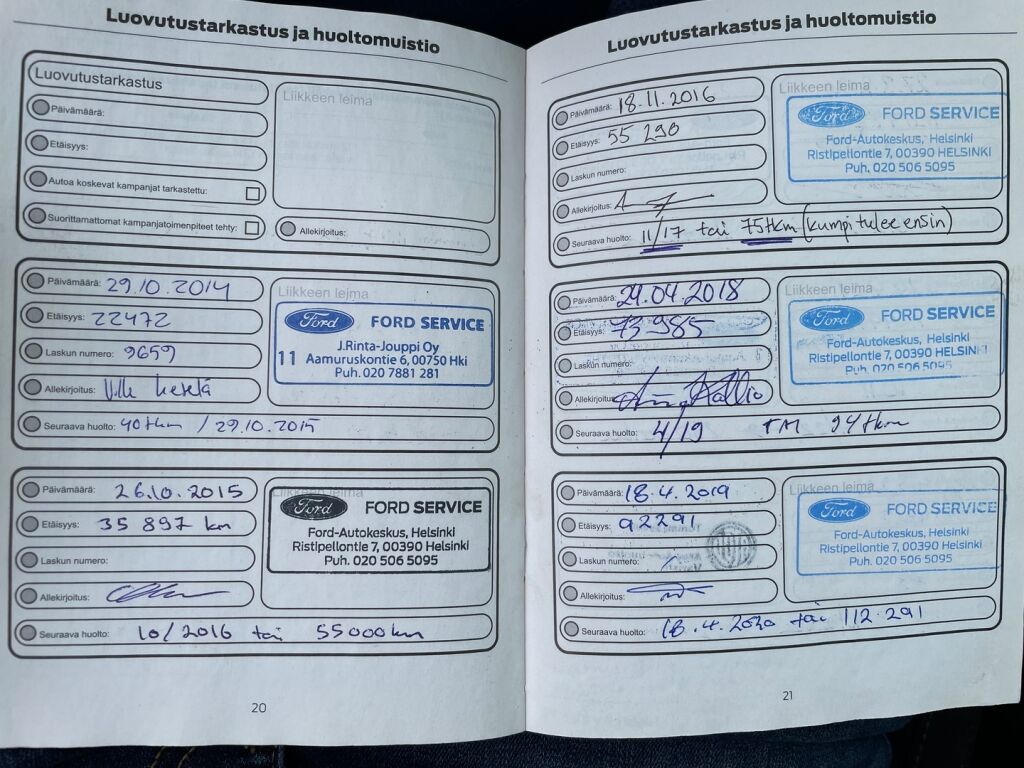 Luovutustarkastus ja huoltomuistio
Luovutustarkastus
Päivämäärä:
Etäisyys:
Autoa koskevat kampanjat tarkastettu:
Suorittamattomat kampanjatoimenpiteet tehty:
Liikkeen leima
Allekirjoitus:
Päivämäärä: 29.10.2014
Etäisyys: 22472
Laskun numero: 9659
Allekirjoitus: Ville
Seuraava huolto: 40tkm / 29.10.2015
Liikkeen leima
Ford FORD SERVICE
J.Rinta-Jouppi Oy
11 Aamuruskontie 6, 00750 Hki
Puh. 020 7881 281
Päivämäärä: 26.10.2015
Etäisyys: 35 897 km
Laskun numero:
Allekirjoitus:
Seuraava huolto: 10/2016 tai 55000km
Liikkeen leima
Ford FORD SERVICE
Ford-Autokeskus, Helsinki
Ristipellontie 7, 00390 Helsinki
Puh. 020 506 5095
20
Luovutustarkastus ja huoltomuistio
Päivämäärä: 18.11.2016
Etäisyys: 55 290
Laskun numero:
Allekirjoitus:
Seuraava huolto: 11/17 tai 75tkm (kumpi tulee ensin)
Liikkeen leima
Ford FORD SERVICE
Ford-Autokeskus, Helsinki
Ristipellontie 7, 00390 HELSINKI
Puh. 020 506 5095
Päivämäärä: 24.04.2018
Etäisyys: 73 985
Laskun numero:
Allekirjoitus: Kallio
Seuraava huolto: 4/19 TAI 94tkm
Liikkeen leima
Ford FORD SERVICE
Ford-Autokeskus, Helsinki
Ristipellontie 7, 00390 HELSINKI
Puh. 020 506 5095
Päivämäärä: 18.4.2019
Etäisyys: 92291
Laskun numero:
Allekirjoitus:
Seuraava huolto: 18.4.2020 tai 112.291
Liikkeen leima
Ford FORD SERVICE
Ford-Autokeskus, Helsinki
Ristipellontie 7, 00390 HELSINKI
Puh. 020 506 5095
21